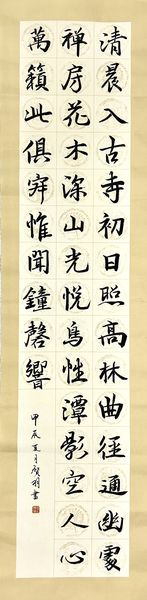 清晨入古寺初日照高林曲徑通幽處
禪房花木深山光悅鳥性潭影空人心
萬籟此俱寂惟聞鐘磬響
甲辰夏月書